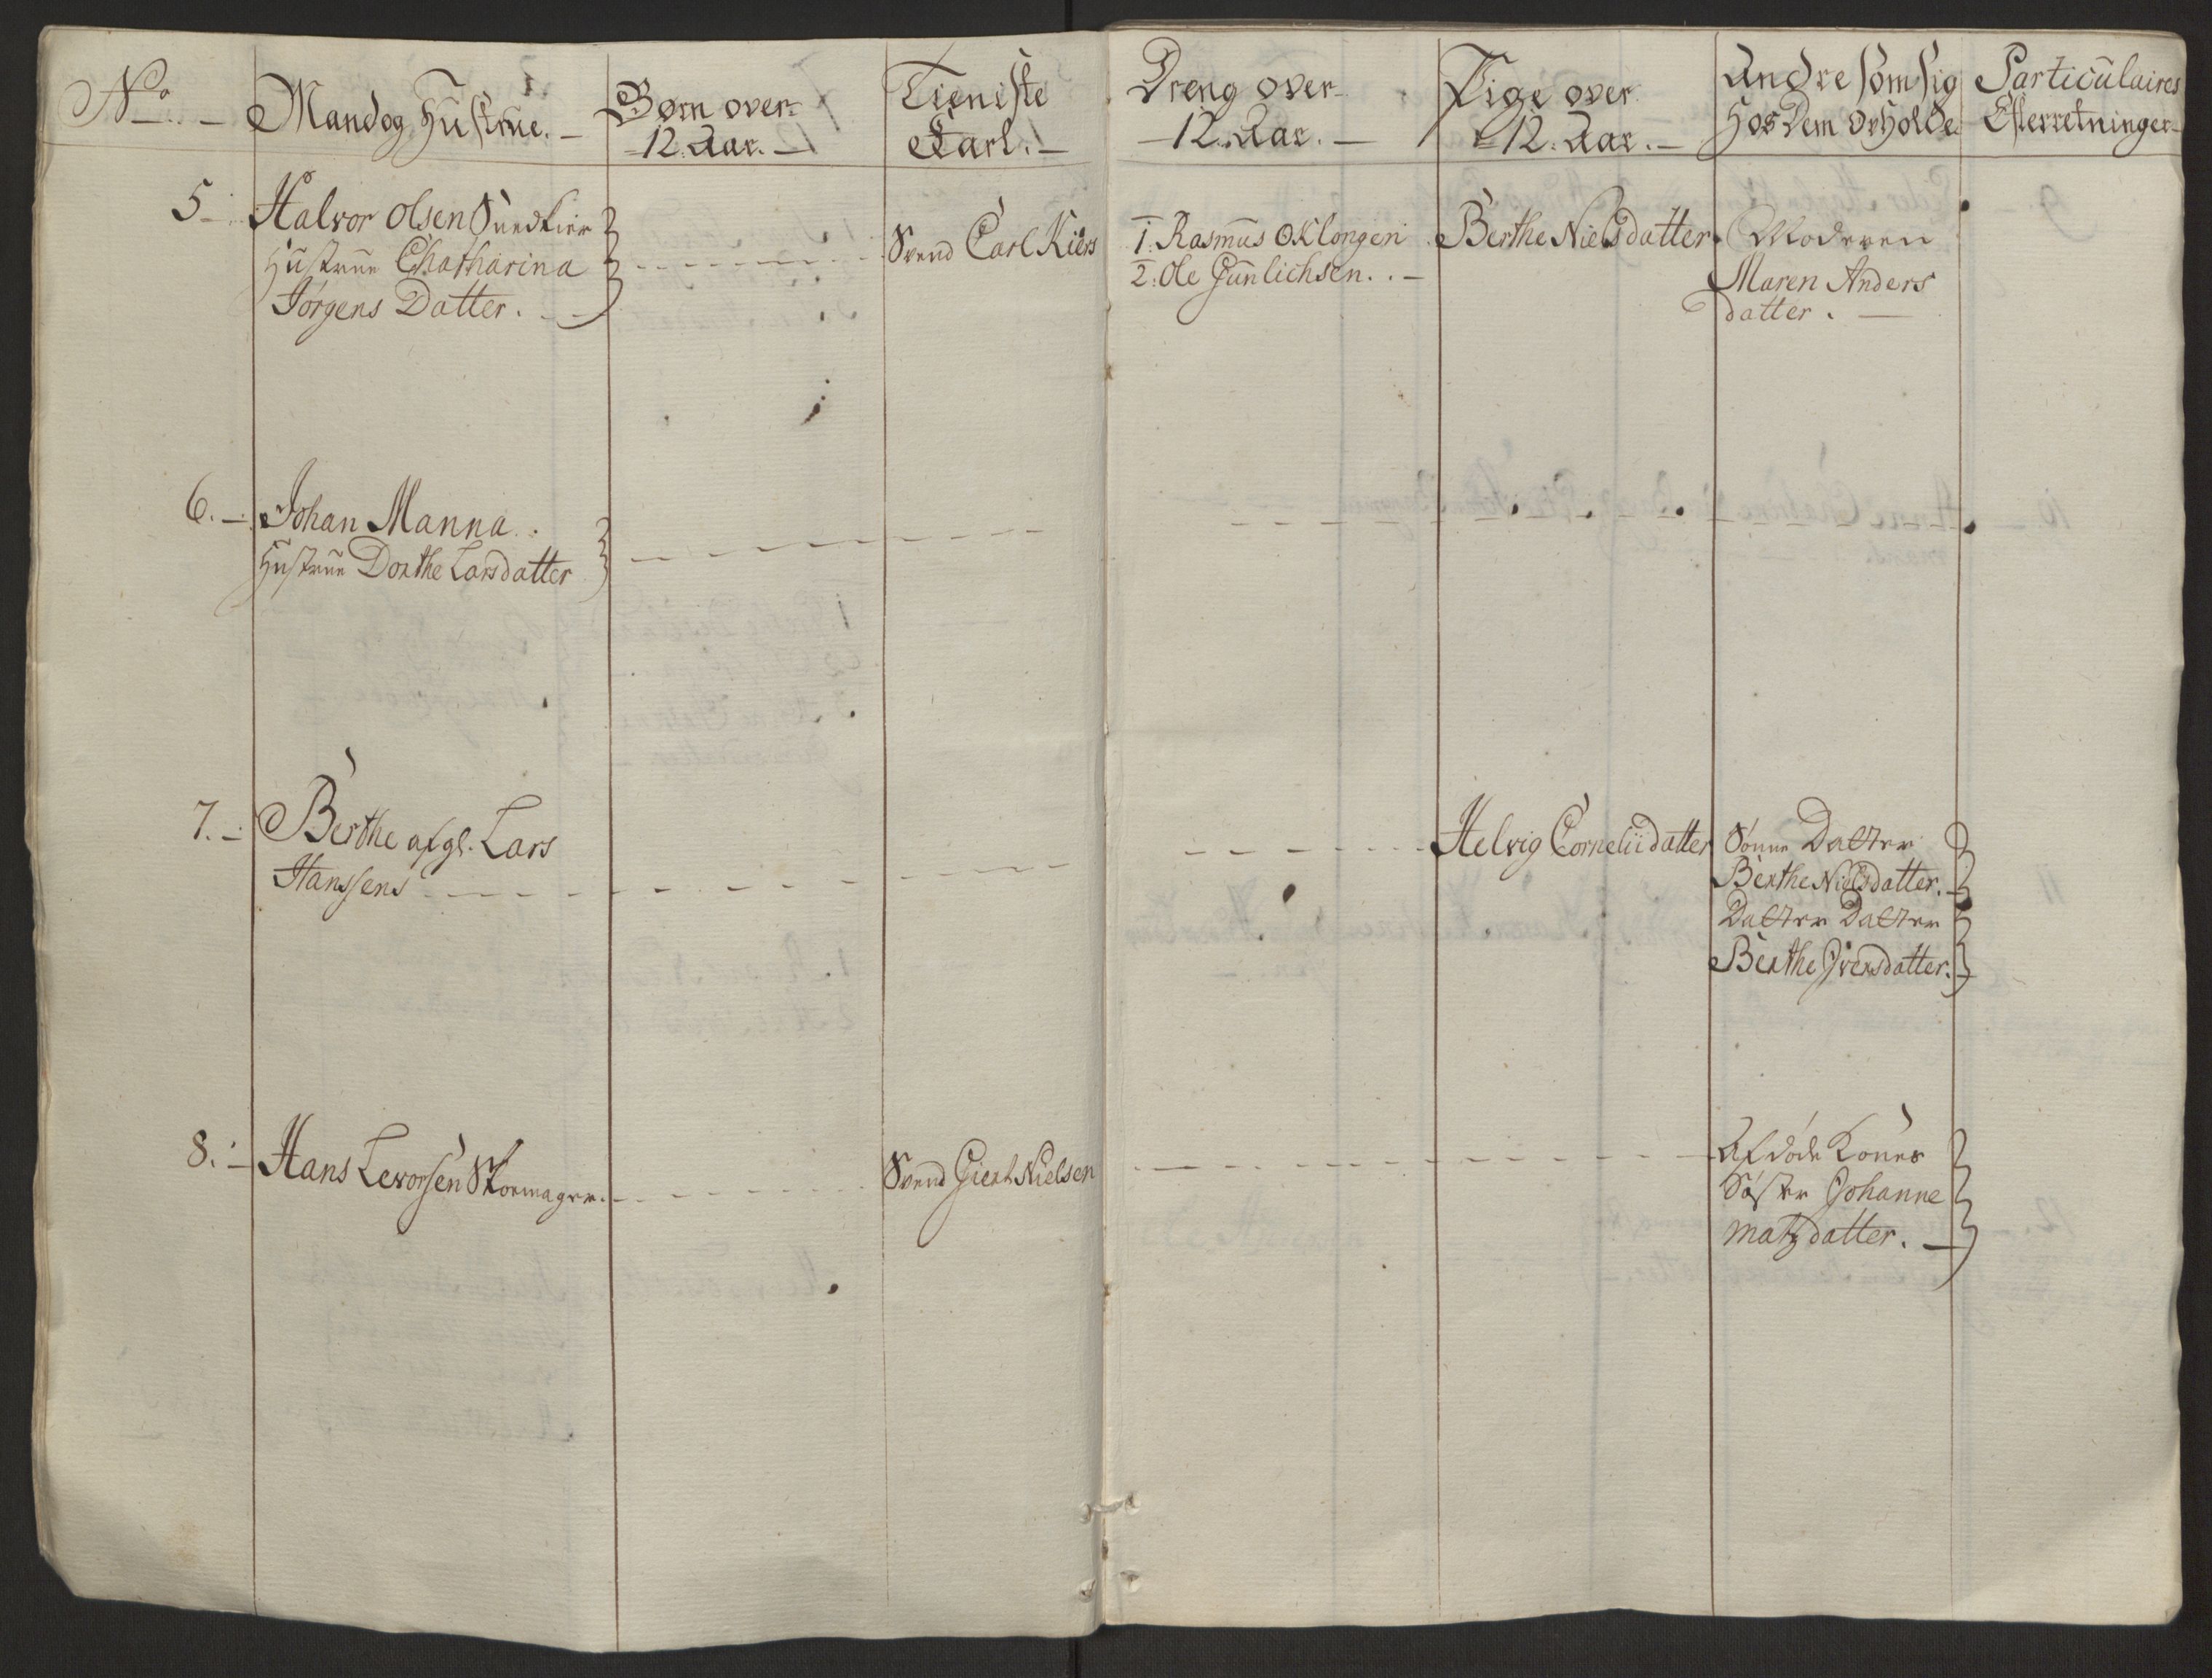 No
Mand og Hustrue.
Børn over
12. Aar.
Tieniste
Karl.
Dreng over
12. Aar.
Pige over
12. Aar.
Andre som sig
Hos Dem opholde
Particulaires
Efterretninger
5
Halvor Olsen
Hustrue Chatharina
Jørgens Datter.
Svend Carl Kiers
1. Rasmus Oklongen
2. Ole Gunlichsen.
Berthe Nielsdatter
Moderen
Maren Anders
datter.
6.
Johan Manna.
Hustrue Dorthe Larsdatter
7.
Berthe afgl. Lars
Hanssens
Helvig Corneliidatter
Sønne Datter
Berthe Nielsdatter.
Datter Datter
Berthe Iversdatter.
8.
Hans Levorsen Skomager.
Svend Giert Nielsen
Afdøde Kones
Søster Johanne
Matzdatter.